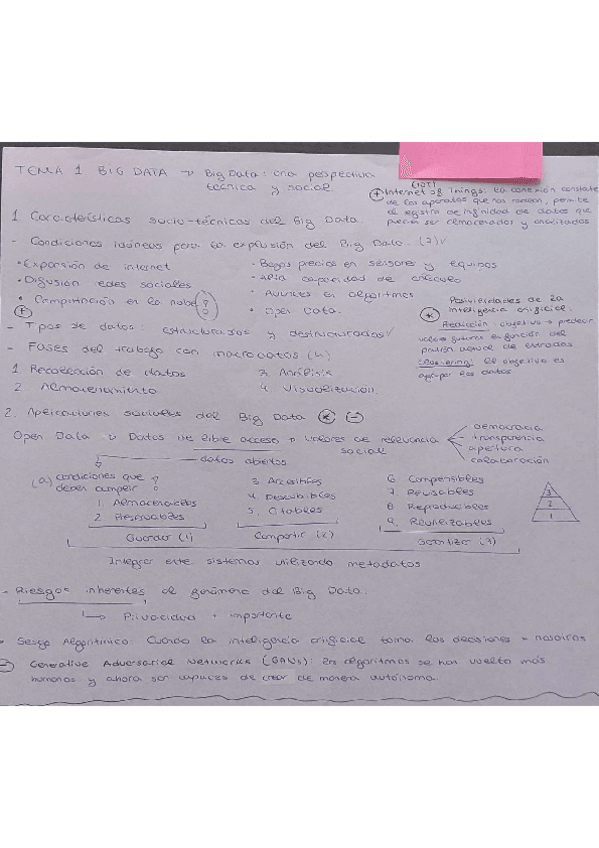 TEMA 1 BIG DATA → Big Data: una perspectiva
técnica y social
(IOT)
⊕ Internet of Things: La conexión constante
de los aparatos que nos rodean, permite
el registro de infinidad de datos que
puedan ser almacenados y analizados
1. Características socio-técnicas del Big Data.
- Condiciones idóneas para la expansión del Big Data. (7)
• Expansión de internet
• Difusión redes sociales
• Computación en la nube
• Bajos precios en sensores y equipos
• capacidad de cálculo
• Avances en algoritmos
• Open Data.
⊕
- Tipos de datos: estructurados y destructurados
- Fases del trabajo con macrodatos (4)
1 Recolección de datos
2 Almacenamiento
3. Análisis
4. Visualización.
* Posibilidades de la
inteligencia artificial.
Predicción: objetivo → predecir
valores futuros en función del
patrón actual de entradas
Clustering: El objetivo es
agrupar los datos
2. Aplicaciones sociales del Big Data * ⊖
Open Data → Datos de libre acceso → valores de relevancia
social
democracia
transparencia
apertura
colaboración
datos abiertos
(9) condiciones que
deben cumplir
1. Almacenados
2. Preservables
3. Accesibles
4. Descubribles
5. Citables
6 Comprensibles
7 Revisables
8 Reproducibles
9. Reutilizables
Guardar (1)
Compartir (2)
(3)
3
2
1
Integrar entre sistemas utilizando metadatos
- Riesgos inherentes al fenómeno del Big Data.
Privacidad + importante
• Sesgo Algorítmico: Cuando la inteligencia artificial toma las decisiones x nosotros
⊖ Generative Adversarial Networks (GANs): los algoritmos se han vuelto más
humanos y ahora son capaces de crear de manera autónoma.